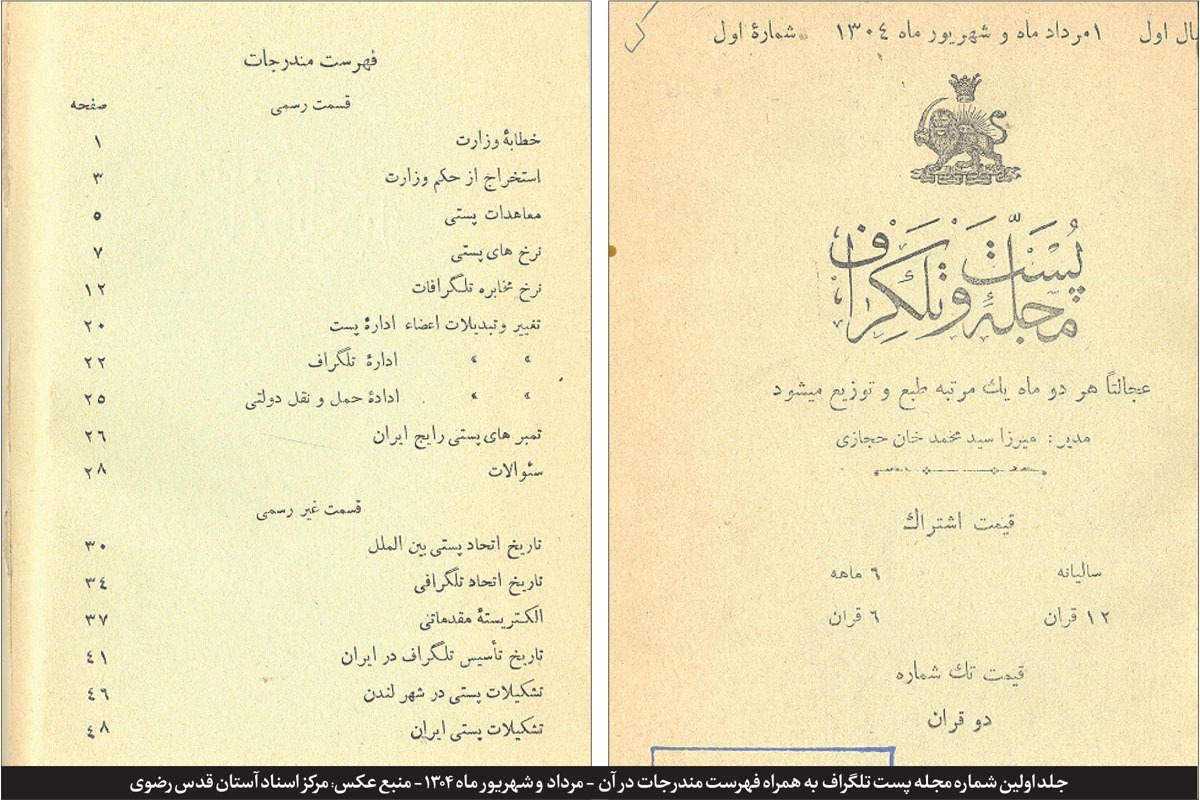 سال اول ۱مرداد ماه و شهریور ماه ۱۳۰٤ شمارهٔ اول
مجلهٔ پست و تلگراف
عجالتاً هر دو ماه یك مرتبه طبع و توزیع میشود
مدیر: میرزا سید محمد خان حجازی
قیمت اشتراك
سالیانه ۶ ماهه
۱۲ قران ۶ قران
قیمت تك شماره
دو قران
فهرست مندرجات
قسمت رسمی صفحه
خطابهٔ وزارت ۱
استخراج از حکم وزارت ۳
معاهدات پستی ٥
نرخ های پستی ۷
نرخ مخابره تلگرافات ۱۲
تغییر و تبدیلات اعضاء ادارهٔ پست ۲۰
» » ادارهٔ تلگراف ۲۲
» » ادادهٔ حمل و نقل دولتی ۲٥
تمبر های پستی رایج ایران ۲۶
سئوالات ۲۸
قسمت غیر رسمی
تاریخ اتحاد پستی بین الملل ۳۰
تاریخ اتحاد تلگرافی ۳٤
الکتریستهٔ مقدماتی ۳۷
تاریخ تأسیس تلگراف در ایران ٤۱
تشکیلات پستی در شهر لندن ٤۶
تشکیلات پستی ایران ٤۸
جلد اولین شماره مجله پست تلگراف به همراه فهرست مندرجات در آن - مرداد و شهریور ماه ۱۳۰۴ - منبع عکس: مرکز اسناد آستان قدس رضوی